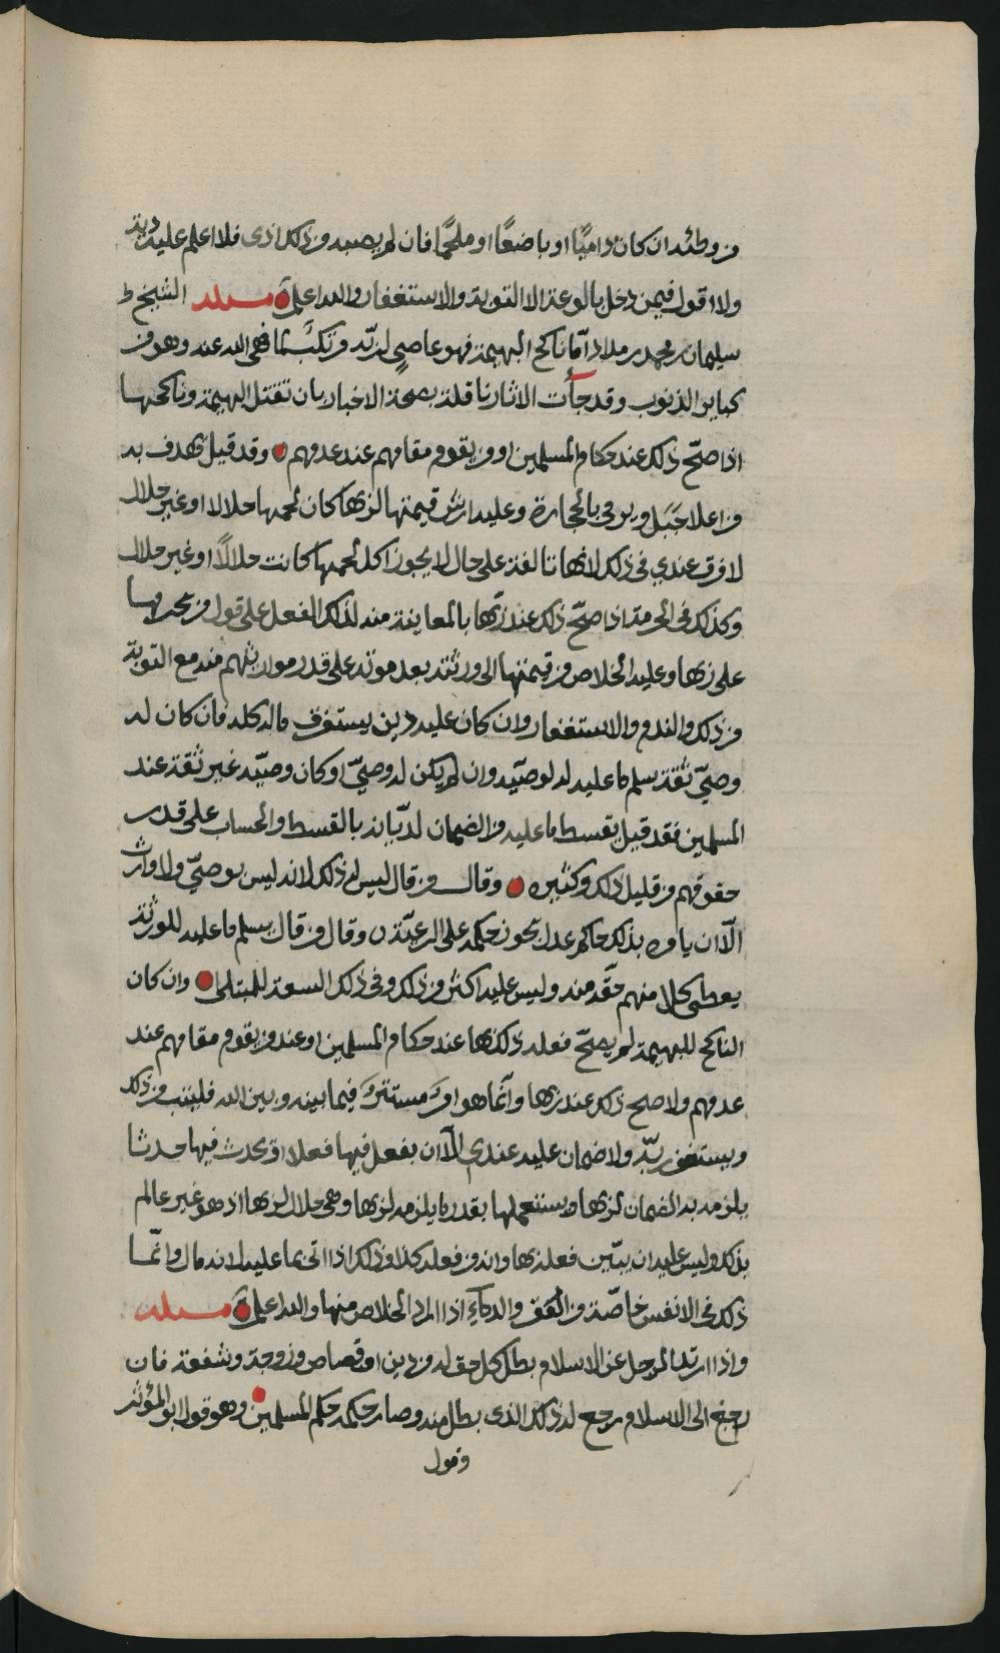 من وطئه ان كان داميًا او باضعًا او ملحمًا فان لم يصبه من ذلك اذى فلا اعلم عليه دية
ولا اقول فيمن دخل بالوعة الا التوبة والاستغفار والله اعلم مسئلة الشيخ ط
سليمان بن محمد بن مداد امّا ناكح البهيمة فهو عاصٍي لربّه مرتكبٌ لما نهى الله عنه وهو من
كباير الذنوب وقد جآت الاثار ناقلة بصحة الاخبار بان تقتل البهيمة وناكحها
اذا صحّ ذلك عند حكام المسلمين او من يقوم مقامهم عند عدمهم وقد قيل يهدف به
من اعلا جَبَل ويرمى بالحجارة وعليه ارش قيمتها لربها كان لحمها حلالا او غير حلال
لا فرق عندي في ذلك لانها تالفة على حال لا يجوز اكل لحمها كانت حلالًا او غير حلال
وكذلك في الحرمة اذا صحّ ذلك عند ربّها بالمعاينة منه لذلك الفعل على قول من يحرمها
على ربها وعليه الخلاص من قيمتها الى ورثته بعد موته على قدر مواريثهم منه مع التوبة
من ذلك والندم والاستغفار وان كان عليه دين يستغرق ماله كله فان كان له
وصيّ ثقة سلم ما عليه له لوصيّه وان لم يكن له وصيّ او كان وصيّه غير ثقة عند
المسلمين فقد قيل يقسط ما عليه من الضمان لديّانه بالقسط والحساب على قدر
حقوقهم من قليل ذلك وكثيره وقال من قال ليس له ذلك لانه ليس بوصيّ ولا وارث
الّا ان يامره بذلك حاكم عدل يجوز حكمه على الرعيّة وقال من قال يسلم ما عليه للورثة
يعطى كلا منهم حقّه منه وليس عليه اكثر من ذلك وفي ذلك السعة للمبتلى وان كان
الناكح للبهيمة لم يصحّ فعله ذلك بها عند حكام المسلمين او عند من يقوم مقامهم عند
عدمهم ولا صح ذلك عند ربها وانّما هو امرَ مستترَ فيما بينه وبين الله فليتب من ذلك
ويستغفر ربّه ولا ضمان عليه عندي الّا ان يفعل فيها فعلا او يحدث فيها حدثا
يلزمه به الضمان لربها او يستعملها بقدر ما يلزمه لربها وهى حلال لربها اذ هو غير عالم
بذلك وليس عليه ان يبيّن فعله بها وانه من فعله كذا وذلك اذا اتى بما عليه لانه مال وانّما
ذلك في الانفس خاصّة من العقر والدمآء اذا اراد الخلاص منها والله اعلم مسئلة
واذا ارتد الرجل عن الاسلام بطل كل حق له من دين او قصاص وزوجة وشفعة فان
رجع الى الاسلام رجع له ذلك الذى بطل منه وصار حكمه حكم المسلمين وهو قول ابو المؤثر
وقول